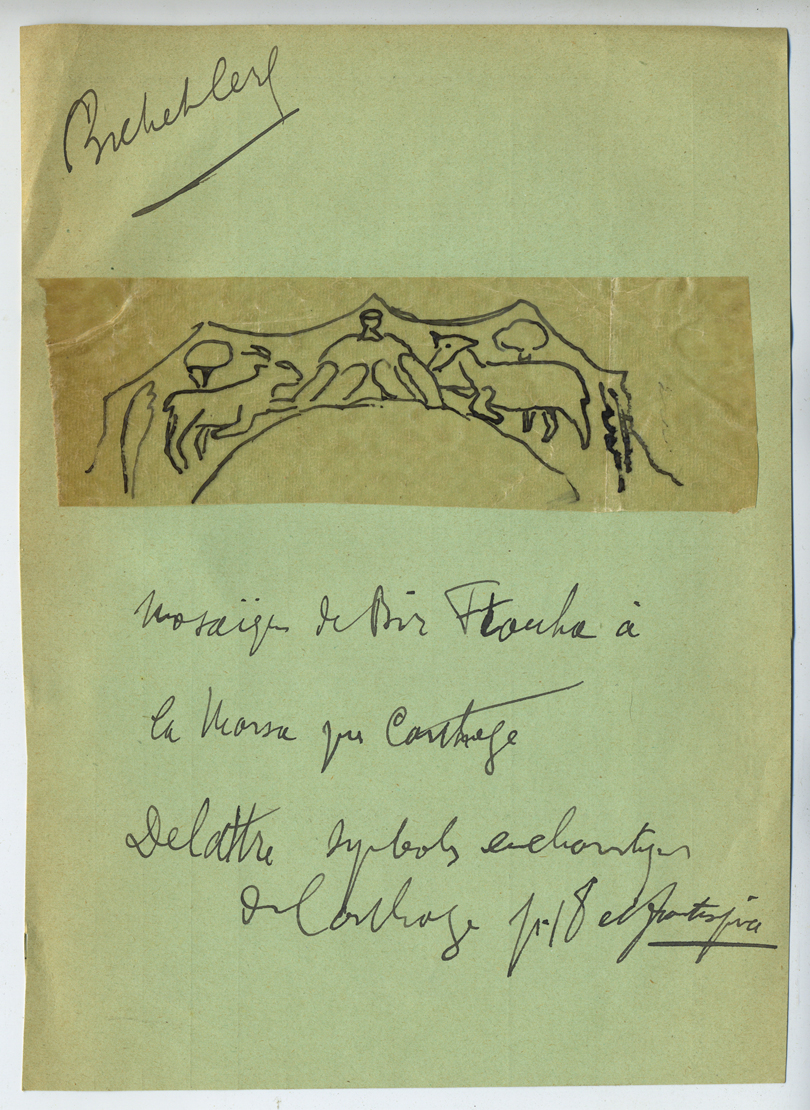 Mosaïque de Bir Ftouha à
la Marsa pres Carthage
Delattre symboles eucharistiques
de Carthage p. 18 et frontispice